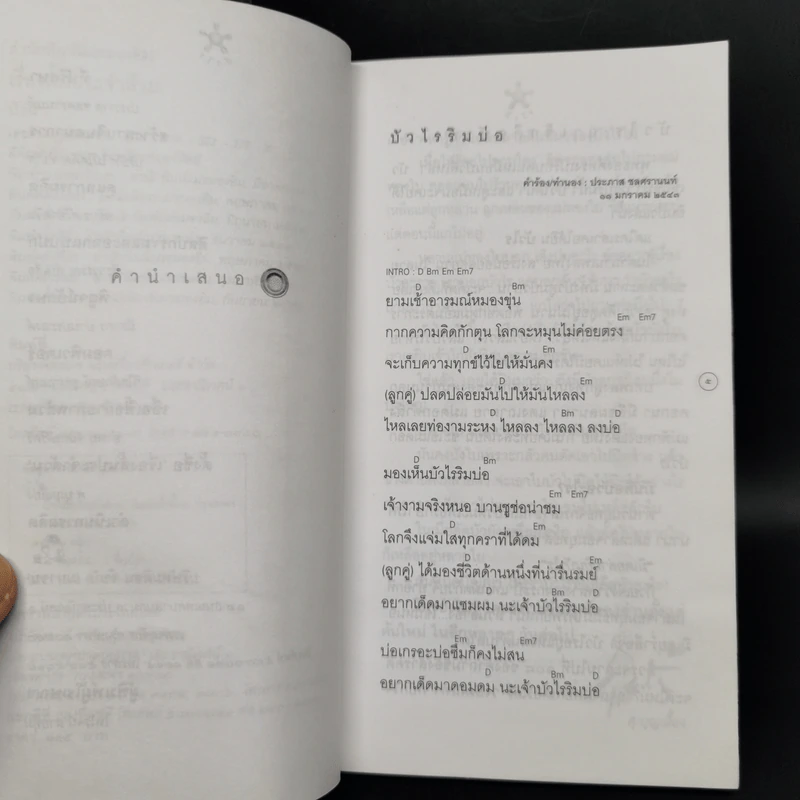 คำนำเสนอ
บัวไรริมบ่อ
คำร้อง/ทำนอง : ประภาส ชลศรานนท์
๑๘ มกราคม ๒๕๔๓
INTRO : D Bm Em Em7
D Bm
ยามเช้าอารมณ์หมองขุ่น
Em Em7
กากความคิดกักตุน โลกจะหมุนไม่ค่อยตรง
D Em
จะเก็บความทุกข์ไว้ไยให้มั่นคง
Em
(ลูกคู่) ปลดปล่อยมันไปให้มันไหลลง
D Bm D
ไหลเลยท่องามระหง ไหลลง ไหลลง ลงบ่อ
D Bm
มองเห็นบัวไรริมบ่อ
Em Em7
เจ้างามจริงหนอ บานชูช่อน่าชม
D Em
โลกจึงแจ่มใสทุกคราที่ได้ดม
D Em
(ลูกคู่) ได้มองชีวิตด้านหนึ่งที่น่ารื่นรมย์
D Bm D
อยากเด็ดมาแซมผม นะเจ้าบัวไรริมบ่อ
Em Em7
บ่อเกรอะบ่อซึมก็คงไม่สน
D Bm D
อยากเด็ดมาดอมดม นะเจ้าบัวไรริมบ่อ